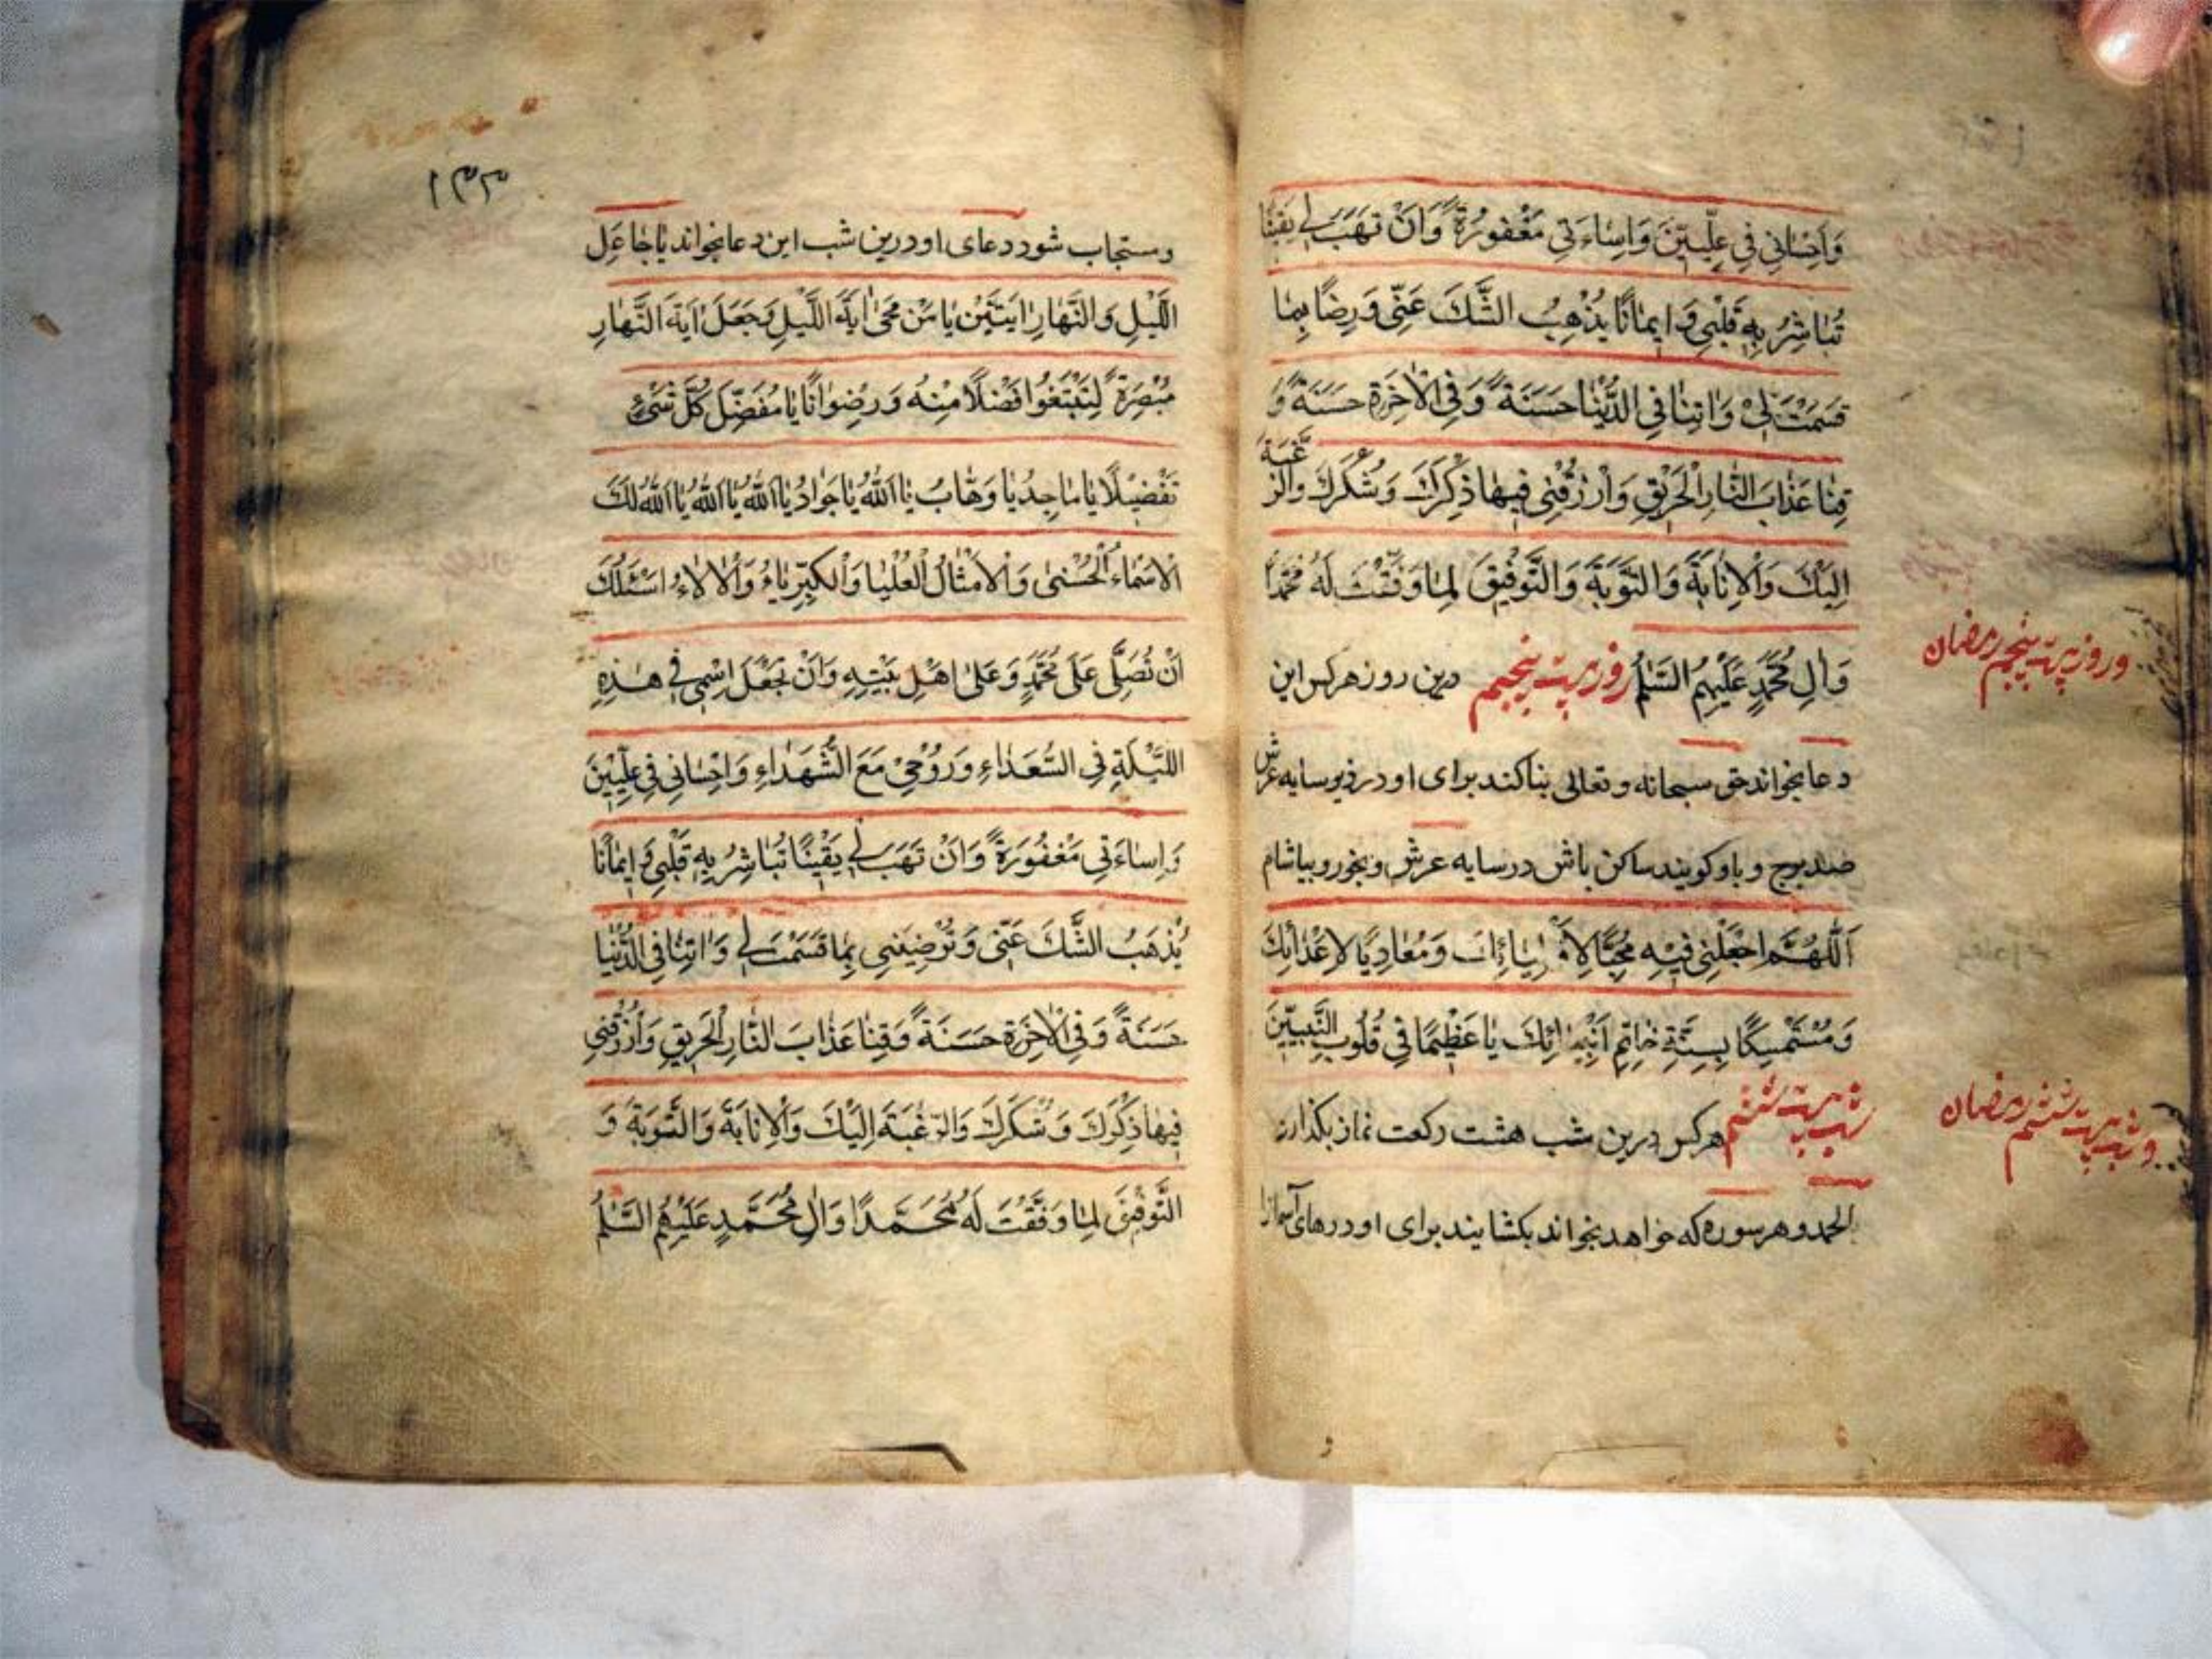 وَاِحْسٰانِى فِى عِلِّيِّينَ وَاِسٰاءَتِى مَغْفُورَةً وَاَنْ تَهَبَ لِى يَقِينًا
تُبٰاشِرُ بِهِ قَلْبِى وَ اِيمٰانًا يُذْهِبُ الشَّكَ عَنِّى وَ رِضًا بِمٰا
قَسَمْتَ لِىْ وَ اٰتِنٰا فِى الدُّنْيٰا حَسَنَةً وَفِى الْاٰخِرَةِ حَسَنَةً وَ
قِنٰا عَذٰابَ النّٰارِ الْحَرِيْقِ وَارْزُقْنِى فِيهٰا ذِكْرَكَ وَ شُكْرَكَ والرَّغْبَةَ
اِلَيْكَ وَالْاِنٰابَةَ وَالتَّوْبَةَ وَالتَّوْفِيْقَ لِمٰا وَفَّقْتَ لَهُ مُحَمَّدًا
وَاٰلِ مُحَمَّدٍ عَلَيْهِمُ السَّلٰمُ روز بیست پنجم درین روز هرکس این
و روز بیست پنجم رمضان
دعا بخواند حق سبحانه و تعالی بنا کند برای او در زیر سایه عرش
صد برج و باو کویند ساکن باش در سایه عرش و بخور و بیاشام
اَللّٰهُمَّ اجْعَلْنِى فِيْهِ مُحِبًّا لِاَوْلِيٰائِكَ وَ مُعٰادِيًا لِاَعْدٰائِكَ
وَ مُسْتَمْسِكًا بِسُنَّةِ خٰاتِمِ اَنْبِيٰائِكَ يٰا عَظِيْمًا فِى قُلُوبِ النَّبِيّٖنَ
شب بیست ششم هرکس درین شب هشت رکعت نماز بکذارد
و شب بیست ششم رمضان
الحمد و هر سوره که خواهد بخواند بکشایند برای او درهای آسمانرا
۱۳۳
و مستجاب شود دعای او درین شب این دعا بخواند يٰا جٰاعِلَ
اللَّيْلِ وَ النَّهٰارِ اٰيَتَيْنِ يٰا مَنْ مَحىٰ اٰيَةَ اللَّيْلِ وَ جَعَلَ اٰيَةَ النَّهٰارِ
مُبْصِرَةً لِتَبْتَغُوا فَضْلًا مِنْهُ وَ رِضْوٰانًا يٰا مُفَصِّلَ كُلِّ شَىْءٍ
تَفْصِيْلًا يٰا مٰاجِدُ يٰا وَهّٰابُ يٰا اَللّٰهُ يٰا جَوٰادُ يٰا اَللّٰهُ يٰا اَللّٰهُ يٰا اَللّٰهُ لَكَ
الْاَسْمٰاءُ الْحُسْنىٰ وَ الْاَمْثٰالُ الْعُلْيٰا وَالْكِبْرِيٰاءُ وَالْاٰلاٰءُ اَسْئَلُكَ
اَنْ تُصَلِّىَ عَلىٰ مُحَمَّدٍ وَ عَلىٰ اَهْلِ بَيْتِهِ وَاَنْ تَجْعَلَ اسْمِى فِى هٰذِهِ
اللَّيْلَةِ فِى السُّعَدٰاءِ وَ رُوْحِىْ مَعَ الشُّهَدٰاءِ وَ اِحْسٰانِى فِى عِلِّيِّيْنَ
وَ اِسٰاءَتِى مَغْفُوْرَةً وَاَنْ تَهَبَ لِى يَقِيْنًا تُبٰاشِرُ بِهِ قَلْبِى وَ اِيْمٰانًا
يُذْهَبُ الشَّكَ عَنِّى وَ تُرْضِيَنِى بِمٰا قَسَمْتَ لِى وَ اٰتِنٰا فِى الدُّنْيٰا
حَسَنَةً وَ فِى الْاٰخِرَةِ حَسَنَةً وَقِنٰا عَذٰابَ النّٰارِ الْحَرِيقِ وَارْزُقْنِى
فِيهٰا ذِكْرَكَ وَ شُكْرَكَ وَالرَّغْبَةَ اِلَيْكَ وَالْاِنٰابَةَ وَالتَّوْبَةَ وَ
التَّوْفِيْقَ لِمٰا وَفَّقْتَ لَهُ مُحَمَّدًا وَ اٰلَ مُحَمَّدٍ عَلَيْهِمُ السَّلٰمُ